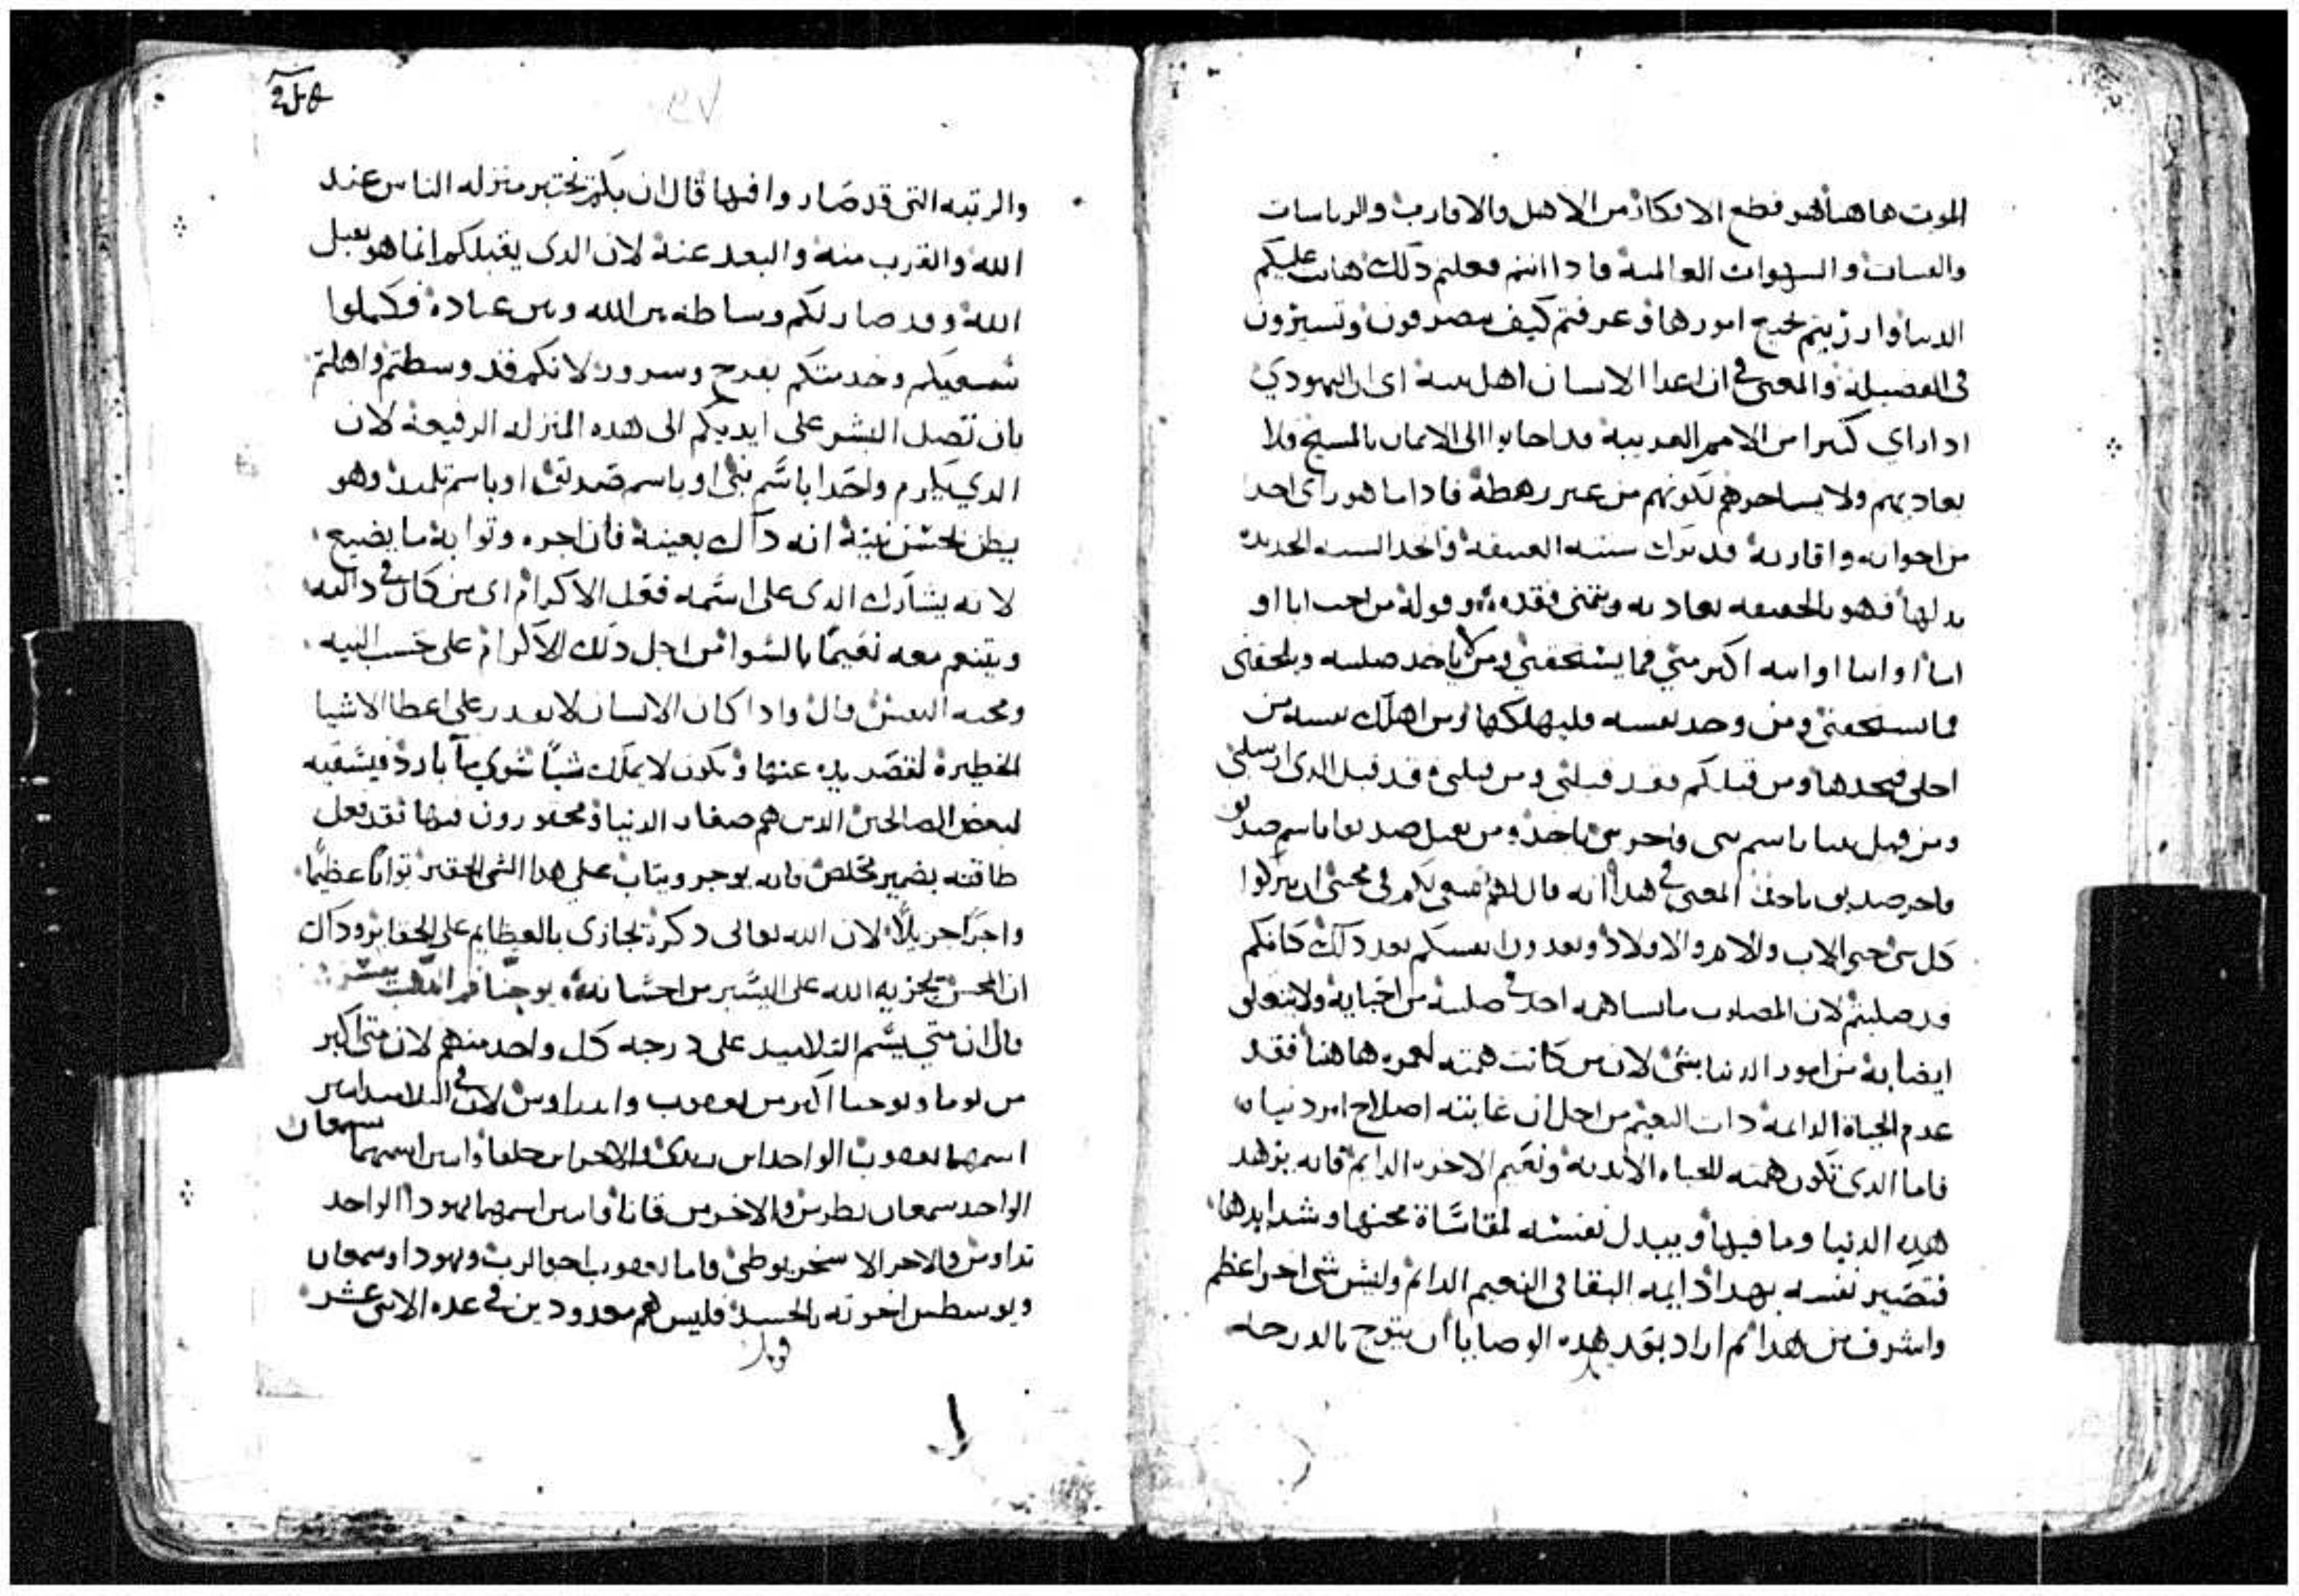 الموت هاهنا هو قطع الافكار من الاهل والاقارب والرياسات
والشهوات العالمية فاذا انتم فعلتم ذلك هانت عليكم
الدنيا وازريتم بجميع امورها وعرفتم كيف تتصرفون وتسيرون
فى الفضيلة والمعنى في ان اعدا الانسان اهل بيته اى ان اليهودي
اذا راي كثيرا من الامم الغريبة قد اجابوا الى الايمان بالمسيح فلا
يعاديهم ولا يشاحرهم لكونهم من غير رهطه فاذا ما هو راى احدا
من اخوانه واقاربه قد ترك سنته العتيقة واتخذ السنة الجديدة
بدلها فهو بالحقيقه يعاديه ويتمنى فقده وقوله من احب ابا او
اما او ابنا او ابنه اكثر مني فما يستحقني ومن لا ياخذ صليبه ويلحقنى
فما يستحقنى ومن وجد نفسه فليهلكها ومن اهلك نفسه من
اجلى فيجدها ومن قبلكم فقد قبلنى ومن قبلنى فقد قبل الذى ارسلنى
ومن قبل نبيا باسم نبى فاجر نبى ياخذ ومن يقبل صديقا باسم صديق
فاجر صديق ياخذ المعنى في هذا انه قال لهم ينبغى لكم فى محبتى ان تتركوا
كل شى حتى الاب والام والاولاد وتعدون انفسكم بعد ذلك كانكم
قد صلبتم لان المصلوب ما يساهمه احد في صليبه من احبايه ولا يتعلق
ايضا به من امور الدنيا بشى لان من كانت همته لعمره هاهنا فقد
عدم الحياة الدايمة ذات النعيم من اجل ان غايته اصلاح امر دنياه
فاما الذى تكون همته للحياه الابدية ونعيم الاخره الدايم فانه يزهد
هذه الدنيا وما فيها ويبذل نفسه لمقاساة محنها وشدايدها
فتصير نفسه بهذا دايمه البقا فى النعيم الدايم وليس شى اخر اعظم
واشرف من هذا ثم اراد بعد هذه الوصايا ان يتوج بالدرجه
والرتبه التى قد صاروا فيها قال ان بكم تختبر منزله الناس عند
الله والقرب منه والبعد عنه لان الذى يقبلكم انما هو يقبل
الله وقد صار لكم وساطه بين الله وبين عباده فكملوا
سعيكم وخدمتكم بفرح وسرور لانكم قد وسطتم واهلتم
بان تصل البشر على ايديكم الى هذه المنزله الرفيعة لان
الذي يكرم واحدا باسم نبى او باسم صديق او باسم تلميذ وهو
يظن بحسن نيته انه ذاك بعينه فان اجره وثوابه ما يضيع
لانه يشارك الذى على اسمه فعل الاكرام اى من كان في ذاته
ويتنعم معه نعيما بالسوا من اجل ذلك الاكرام على حسب النيه
ومحبه النفس قال واذا كان الانسان لا يقدر على اعطا الاشيا
الخطيرة لقصر يده عنها ويكون لا يملك شيا سوى ما بارد فيسقيه
لبعض الصالحين الذين هم صغار الدنيا ومحقورون فيها فقد فعل
طاقته بضمير مخلص فانه يوجر ويثاب على هذا الشى الحقير ثوابا عظيما
واجرا جزيلا لان الله تعالى ذكره يجازى بالعظايم على الحقاير وذاك
ان المحسن يجزيه الله على اليسير من احسانه يوحنا فم الذهب يفسر
قال ان متى يسم التلاميذ على درجه كل واحد منهم لان متى اكبر
من توما ويوحنا اكبر من يعقوب واندراوس لان في التلاميذ اثنين
اسمهما يعقوب الواحد ابن زبدى والاخر ابن حلفا واثنين اسمهما سمعان
الواحد سمعان بطرس والاخر من قانا واثنين اسمهما يهودا الواحد
تداوس والاخر الاسخريوطى فاما يعقوب اخو الرب ويهودا وسمعان
ويوسطس اخوته بالجسد فليس هم معدودين في عده الاثنى عشر